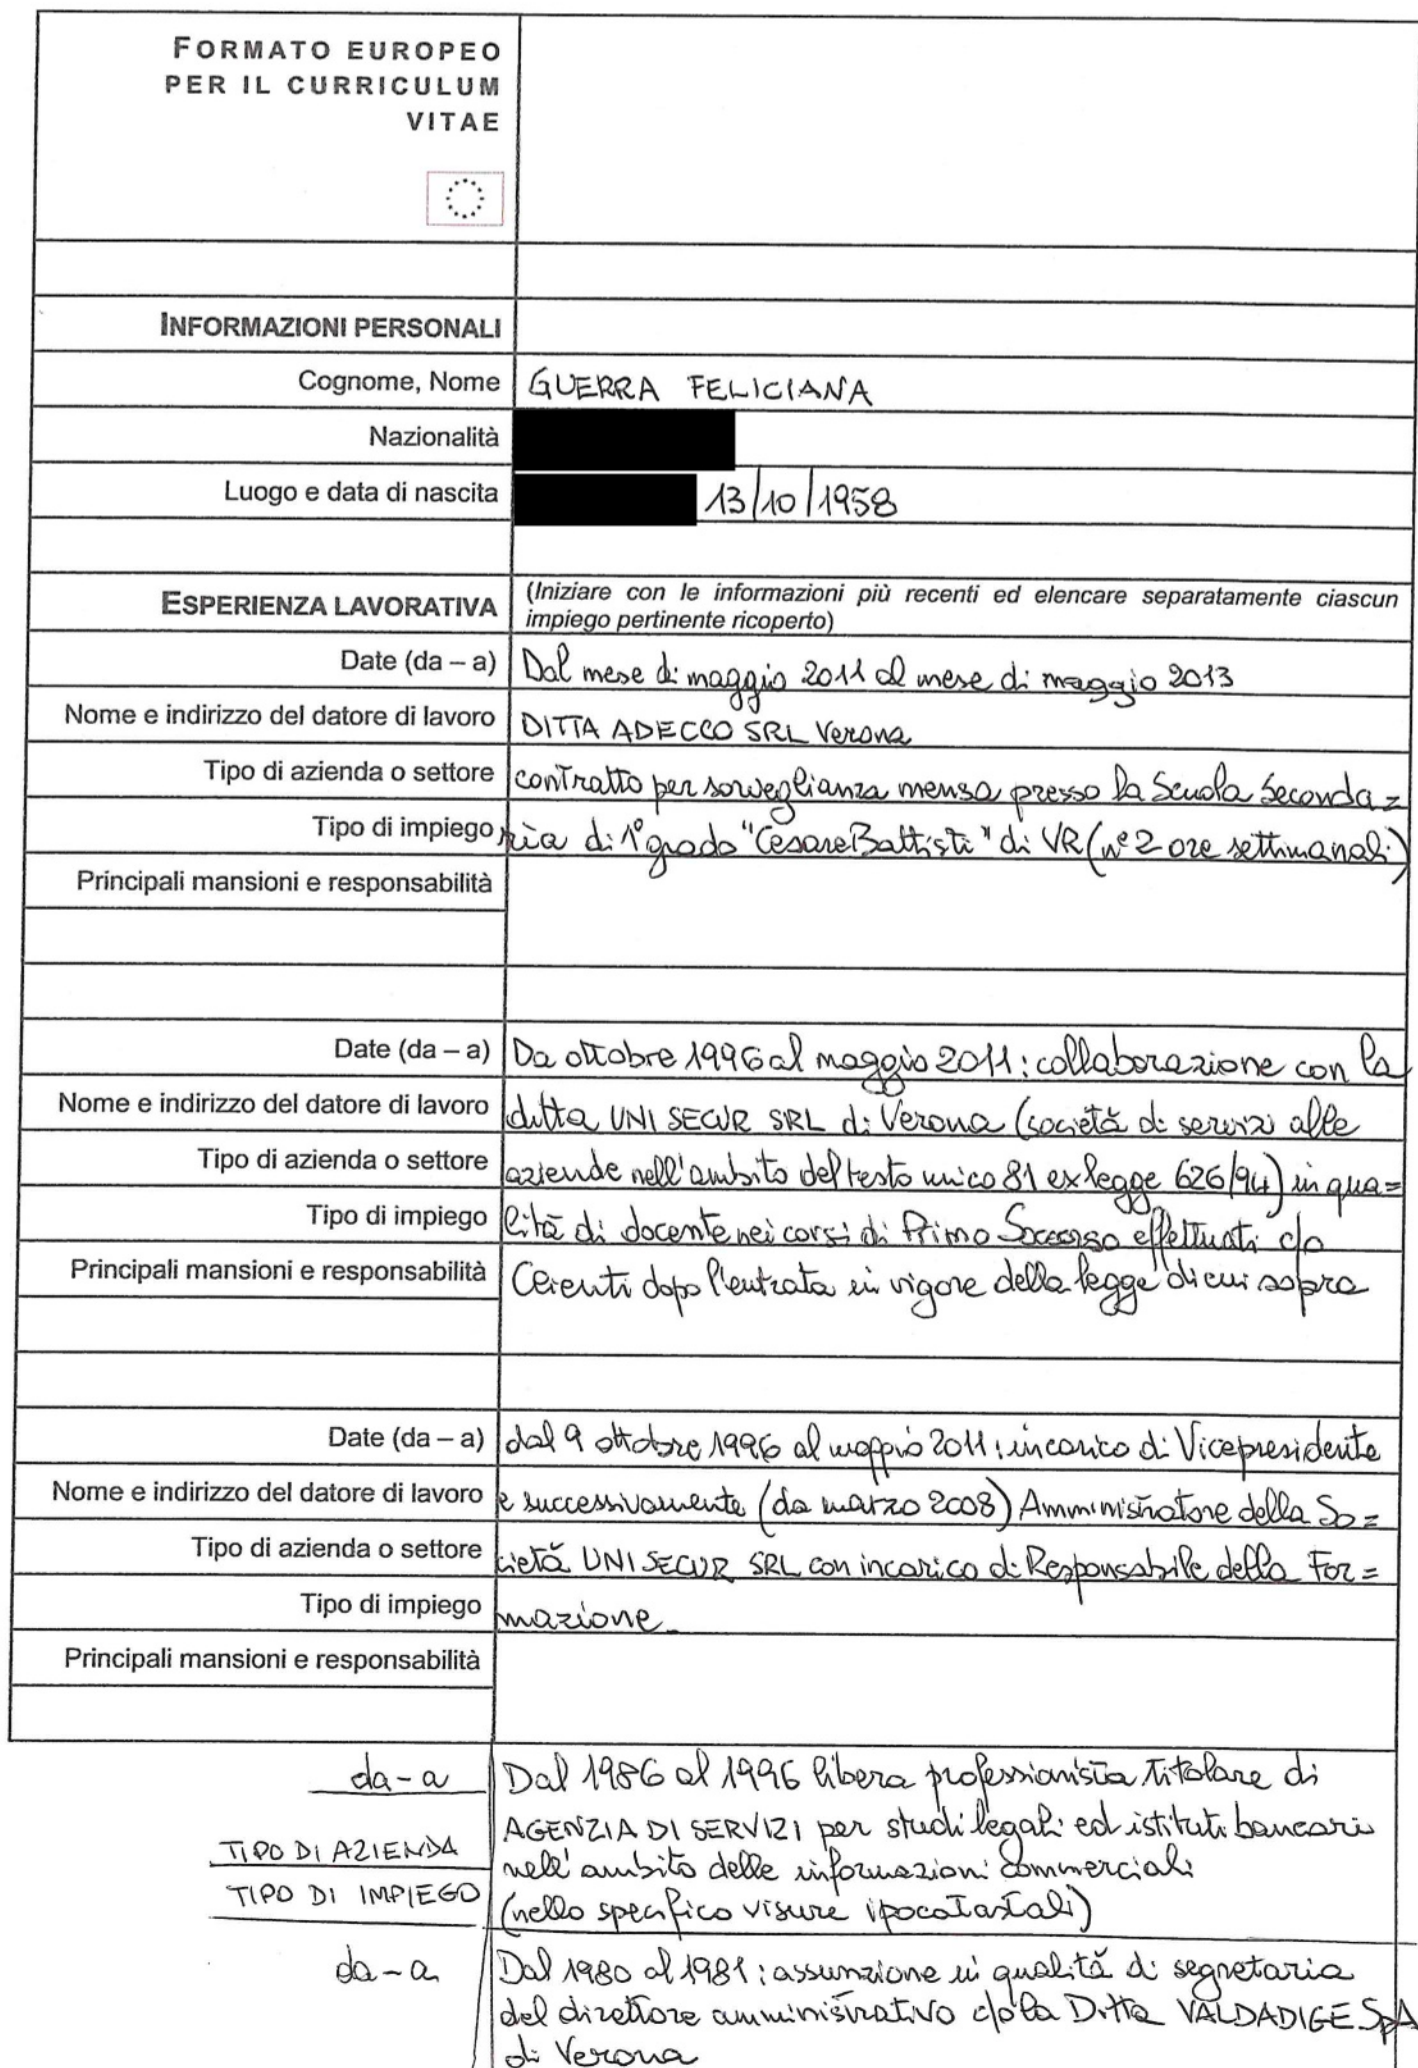 FORMATO EUROPEO
PER IL CURRICULUM
VITAE
INFORMAZIONI PERSONALI
Cognome, Nome GUERRA FELICIANA
Nazionalità
Luogo e data di nascita 13/10/1958
ESPERIENZA LAVORATIVA (Iniziare con le informazioni più recenti ed elencare separatamente ciascun
impiego pertinente ricoperto)
Date (da – a) Dal mese di maggio 2011 al mese di maggio 2013
Nome e indirizzo del datore di lavoro DITTA ADECCO SRL Verona
Tipo di azienda o settore contratto per sorveglianza mensa presso la Scuola Seconda=
Tipo di impiego ria di 1° grado "Cesare Battisti" di VR (n° 2 ore settimanali)
Principali mansioni e responsabilità
Date (da – a) Da ottobre 1996 al maggio 2011: collaborazione con la
Nome e indirizzo del datore di lavoro ditta UNISECUR SRL di Verona (società di servizi alle
Tipo di azienda o settore aziende nell'ambito del testo unico 81 ex legge 626/94) in qua=
Tipo di impiego lità di docente nei corsi di Primo Soccorso effettuati c/o
Principali mansioni e responsabilità Clienti dopo l'entrata in vigore della legge di cui sopra
Date (da – a) dal 9 ottobre 1996 al maggio 2011: incarico di Vicepresidente
Nome e indirizzo del datore di lavoro e successivamente (da marzo 2008) Amministratore della So=
Tipo di azienda o settore cietà UNISECUR SRL con incarico di Responsabile della For=
Tipo di impiego mazione
Principali mansioni e responsabilità
da-a Dal 1986 al 1996 libera professionista titolare di
TIPO DI AZIENDA AGENZIA DI SERVIZI per studi legali ed istituti bancari
nell'ambito delle informazioni Commerciali
TIPO DI IMPIEGO (nello specifico visure ipocatastali)
da-a Dal 1980 al 1981: assunzione in qualità di segretaria
del direttore amministrativo c/o la Ditta VALDADIGE SpA
di Verona